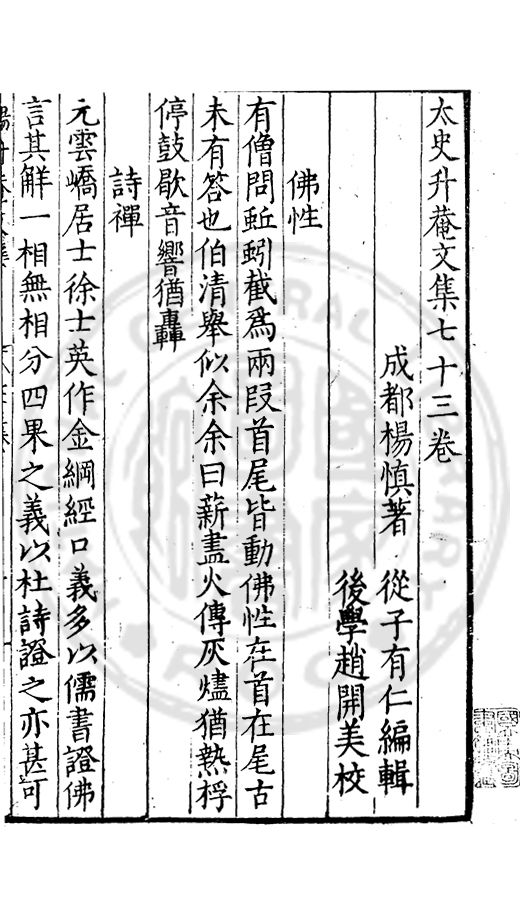 太史升菴文集七十三卷
成都楊慎著 從子有仁編輯
後學趙開美校
佛性
有僧問蚯蚓截爲兩段首尾皆動佛性在首在尾古
未有答也伯清舉似余余曰薪盡火傳灰燼猶熱桴
停鼓歇音響猶轟
詩禪
元雲嶠居士徐士英作金綱經口義多以儒書證佛
言其解一相無相分四果之義以杜詩證之亦甚可